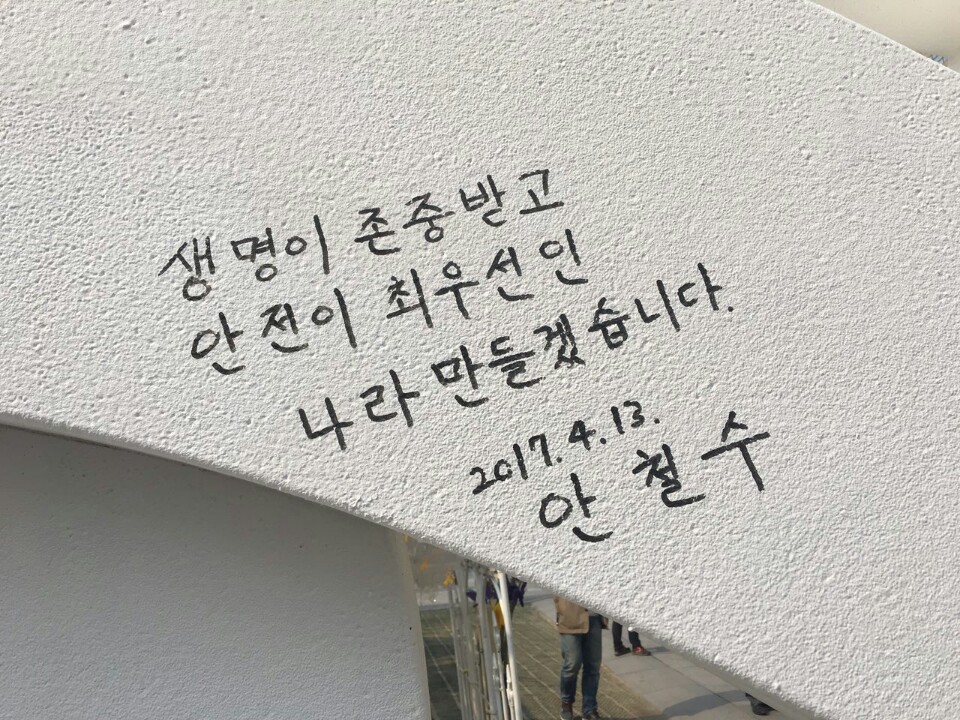 생명이 존중받고
안전이 최우선인
나라 만들겠습니다.
2017.4.13.
안철수